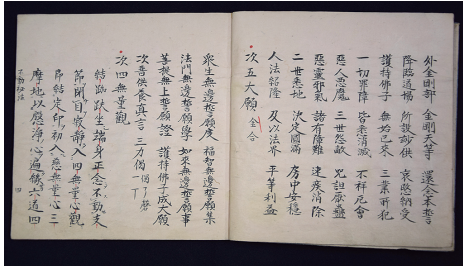 外金剛部 金剛天等 還念本誓
降臨道場 所設妙供 哀愍納受
護持佛子 無始已來 三業所犯
一切罪障 皆悉消滅 不祥厄會
惡人惡魔 三世怨敵 咒詛厭蠱
惡靈邪氣 諸有障難 速疾消除
二世悉地 決定圓滿 房中安穩
人法紹隆 及以法界 平等利益
次五大願 金合
衆生無邊誓願度 福智無邊誓願集
法門無邊誓願學 如來無邊誓願事
菩提無上誓願證 護持佛子成大願
次普供養真言 三力偈 一偈了磬一丁
次四無量觀
結跏趺坐端身正念不動支
節閉目寂靜入四無量心觀
即結定印初入慈無量心三
摩地以慇淨心遍緣六道四
不動
四